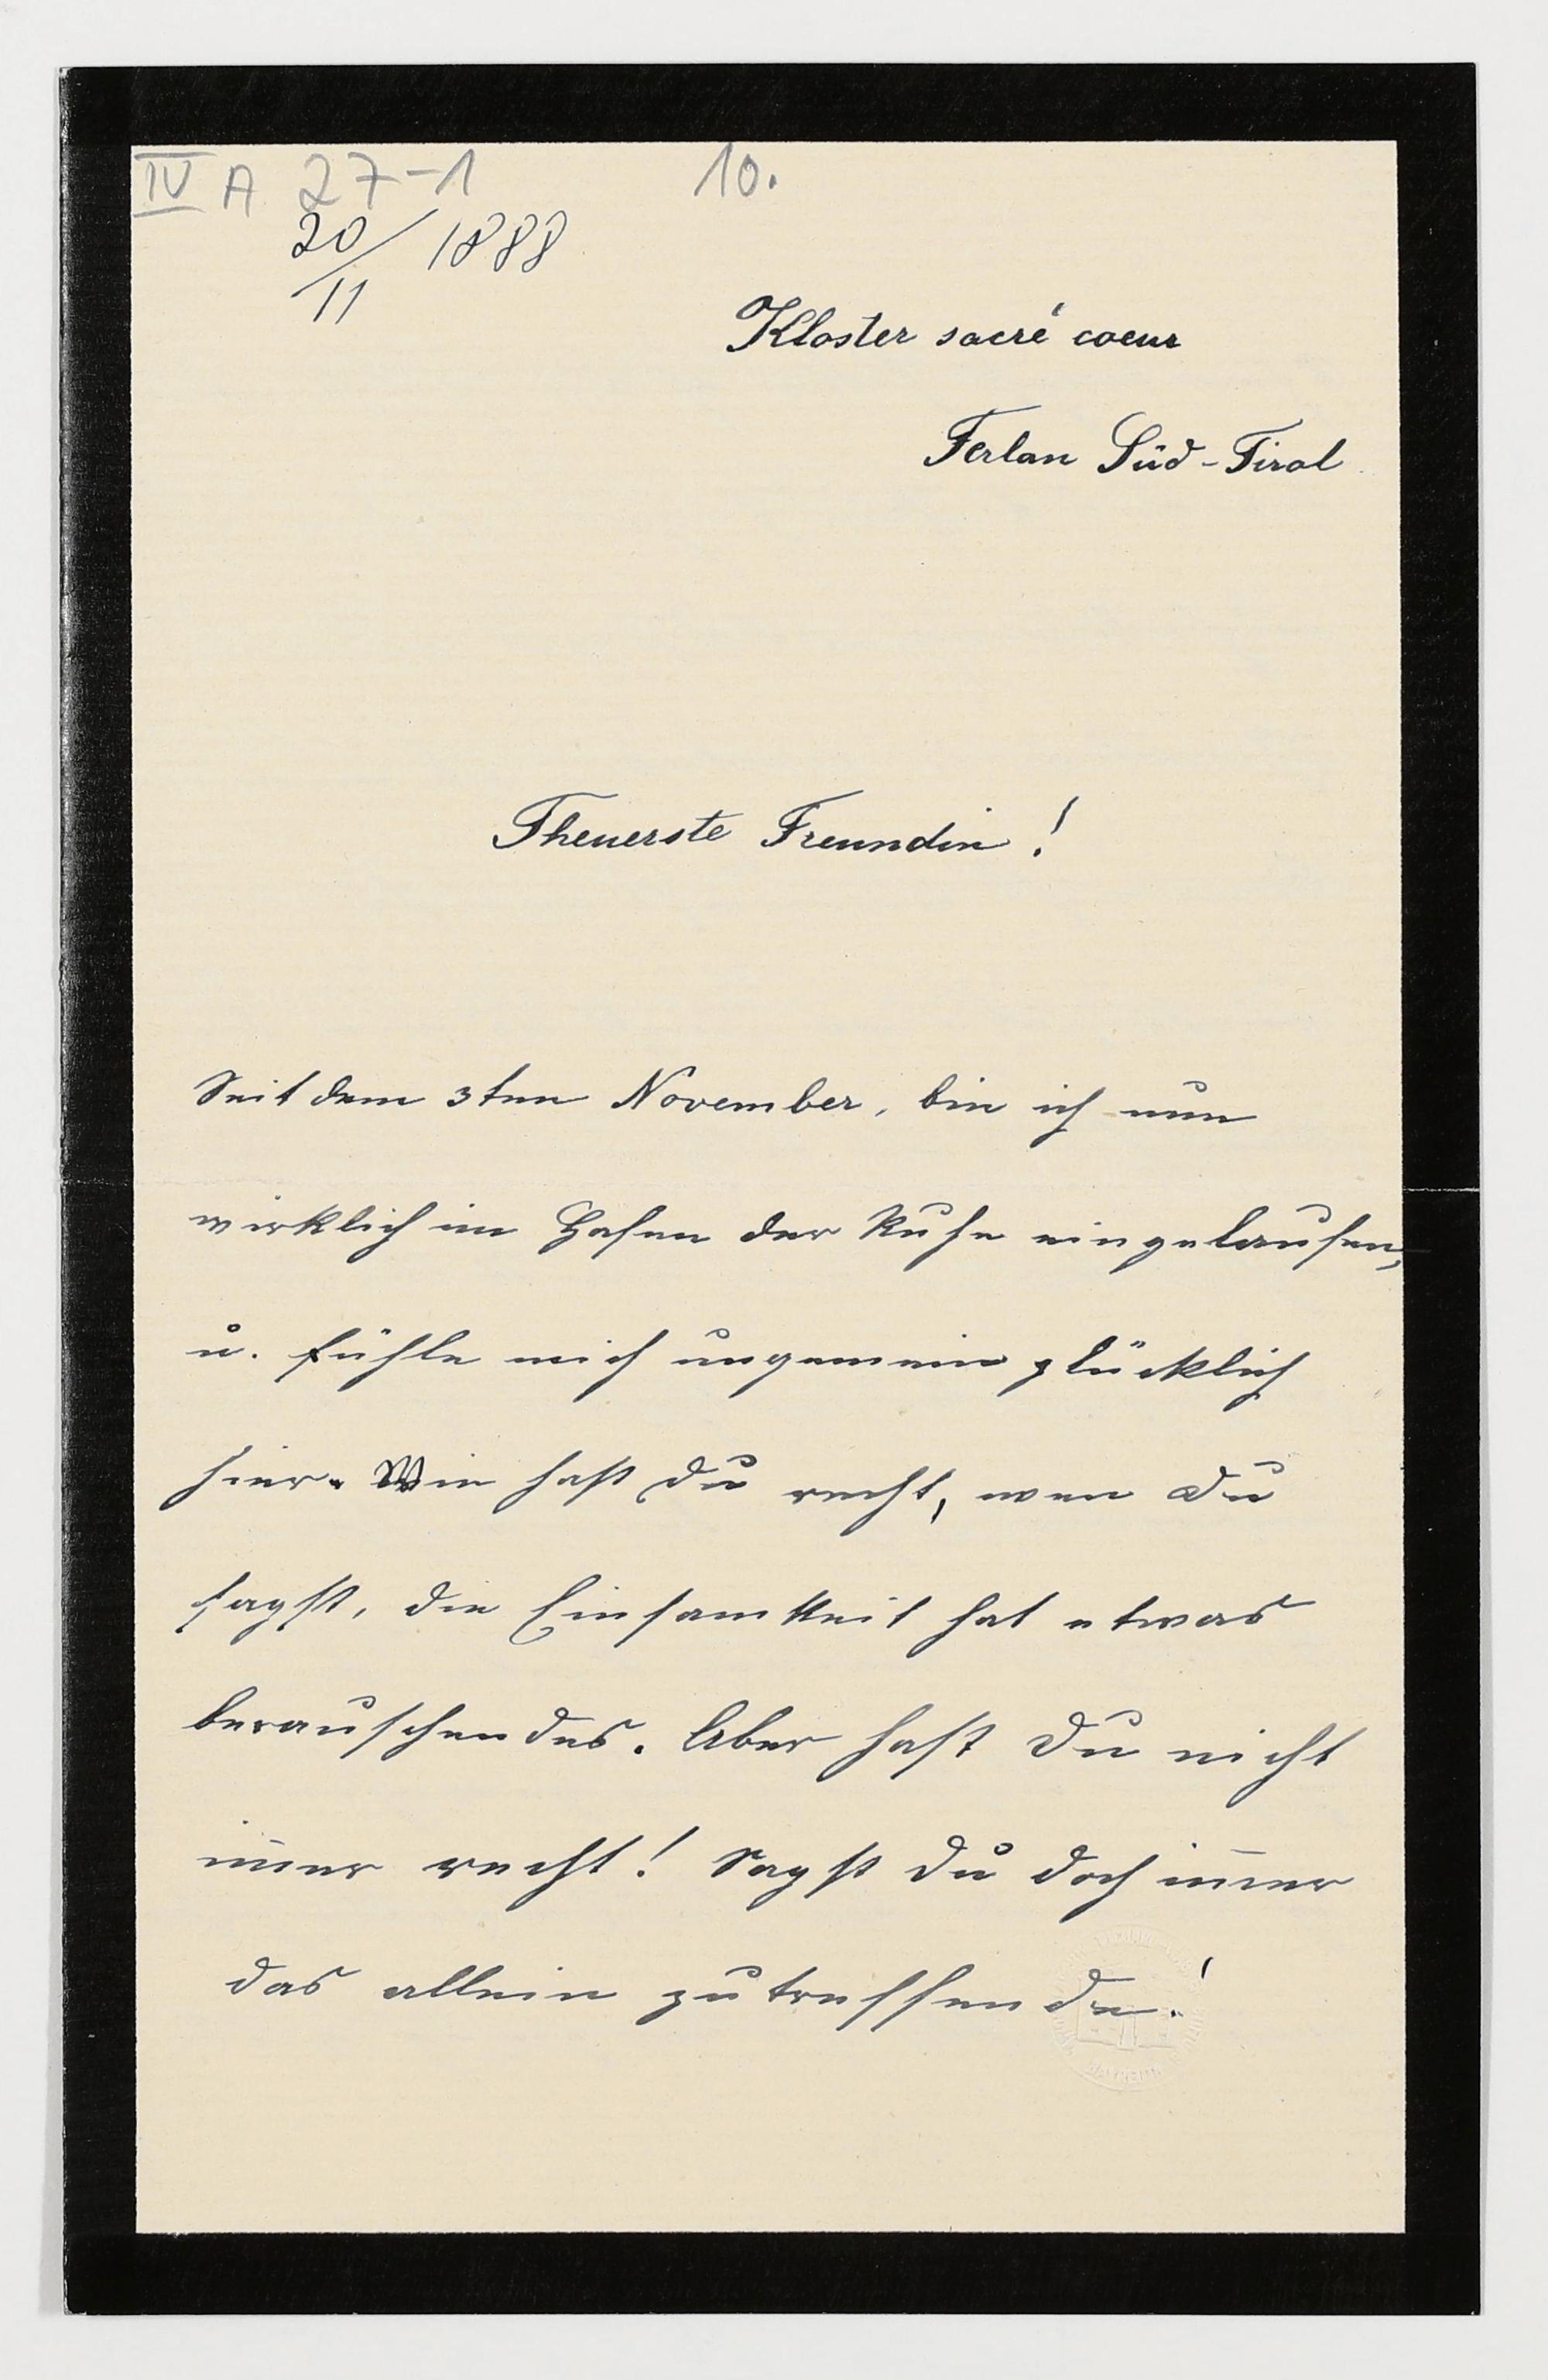 IV A 27-1 10.
20/11 1888
Kloster sacré coeur
Terlan Süd-Tirol
Theuerste Freundin!
Seit dem 3ten November, bin ich nun
wirklich im Hafen der Ruhe eingelaufen,
u. fühle mich ungemein glücklich
hier. Wie hast Du recht, wen Du
sagst, die Einsamkeit hat etwas
berauschendes. Aber hast Du nicht
im̄er recht! Sagst Du doch im̄er
das allein zutreffende!